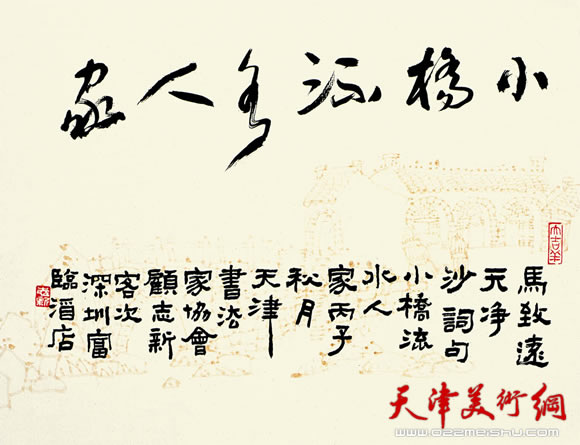 小橋流水人家
馬致遠
天净
沙詞句
小橋流
水人
家丙子
秋月
天津
書法
家協會
顧志新
客次
深圳富
臨酒店
大吉羊
天津美術網
www.022meishu.com